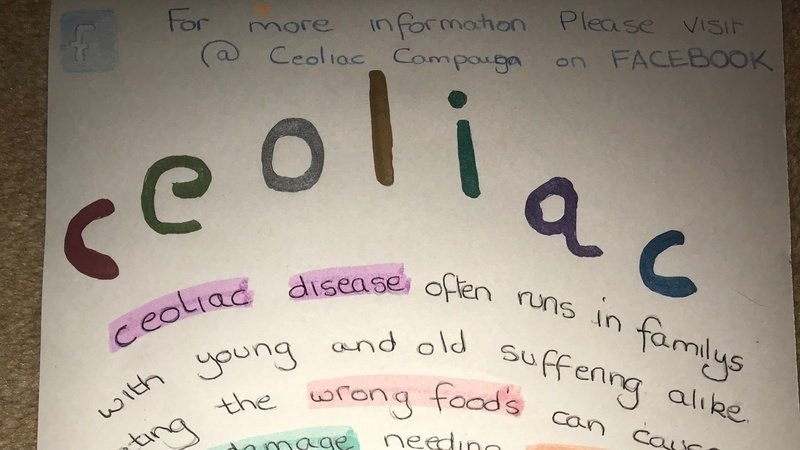 f
For more information Please visit
@ Ceoliac Campaiga on FACEBOOK
ceoliac
ceoliac disease often runs in familys
with young and old suffering alike
the wrong food's can cause
damage needing